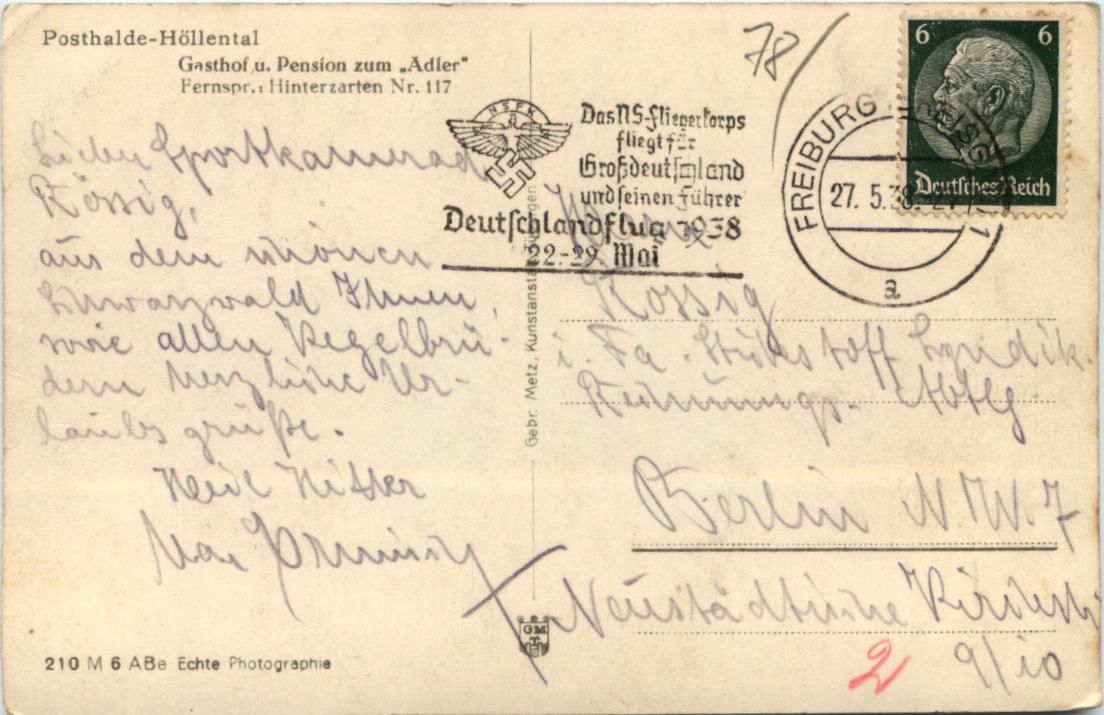 Posthalde-Höllental
Gasthof u. Pension zum „Adler"
Fernspr.: Hinterzarten Nr. 117
78/
6 6
Deutsches Reich
FREIBURG
27. 5. 38
1
a
NSFK
Das NS-Fliegerkorps
fliegt für
Großdeutschland
und seinen Führer
Deutschlandflug 1938
22.-29. Mai
Lieber Sportkamerad
Rössig,
aus dem schönen
Schwarzwald Ihnen,
sowie allen Kegelbrü-
dern herzliche Ur-
laubsgrüße.
Heil Hitler
Gebr. Metz, Kunstanstalt, Tübingen
Herrn
Rössig
i. Fa. Stickstoff Syndik.
Rechnungs-Abtlg
Berlin N.W. 7
Neustädtische Kirchstr
9/10
2
GMT
210 M 6 ABe Echte Photographie